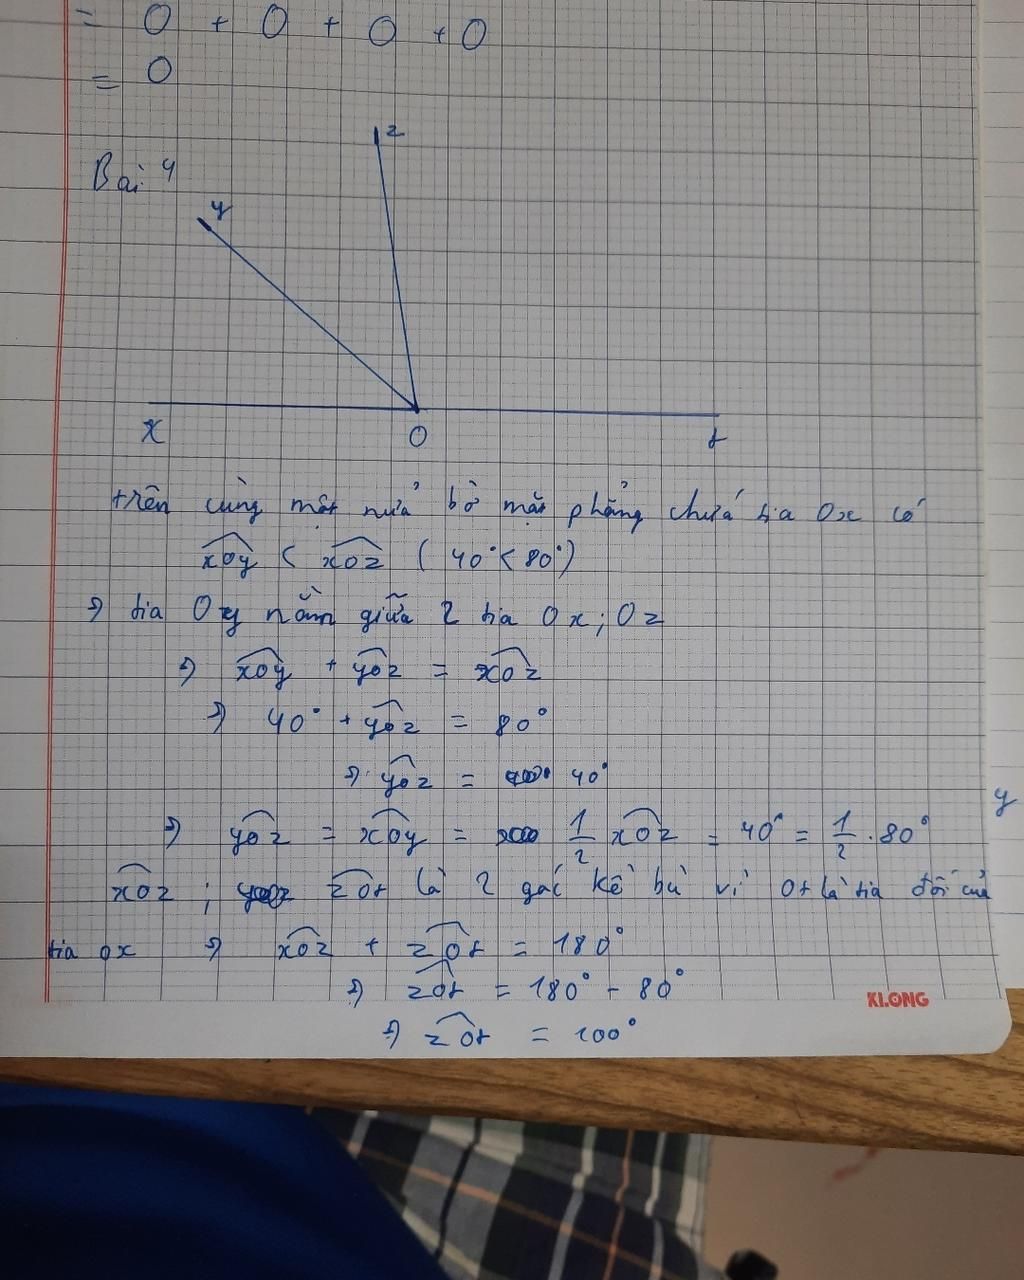 = 0 + 0 + 0 + 0
= 0
Bài 4
z
y
x
O
t
trên cùng một nửa bờ mặt phẳng chứa tia Ox có
xOy < xOz ( 40° < 80° )
=> tia Oy nằm giữa 2 tia Ox ; Oz
=> xOy + yOz = xOz
=> 40° + yOz = 80°
=> yOz = 40°
y
=> yOz = xOy = 1/2 xOz = 40° = 1/2 . 80°
xOz ; zOt là 2 góc kề bù vì Ot là tia đối của
tia Ox => xOz + zOt = 180°
=> zOt = 180° - 80°
=> zOt = 100°
KLONG